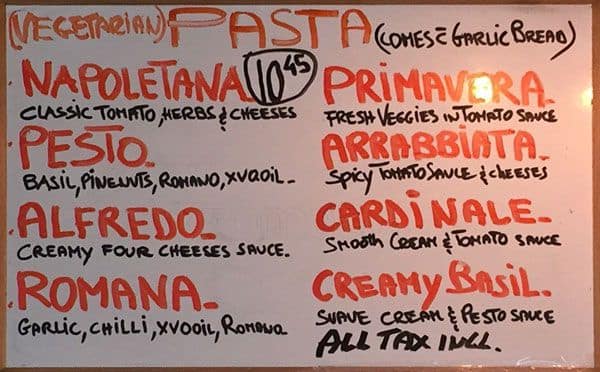 (VEGETARIAN) PASTA (COMES C GARLIC BREAD)
NAPOLETANA 10 45
CLASSIC TOMATO, HERBS & CHEESES
PESTO
BASIL, PINENUTS, ROMANO, XVOOIL
ALFREDO
CREAMY FOUR CHEESES SAUCE.
ROMANA
GARLIC, CHILLI, XVOOIL, ROMANO
PRIMAVERA
FRESH VEGGIES IN TOMATO SAUCE
ARRABBIATA
SPICY TOMATO SAUCE & CHEESES
CARDINALE
SMOOTH CREAM & TOMATO SAUCE
CREAMY BASIL
SUAVE CREAM & PESTO SAUCE
ALL TAX INCL.